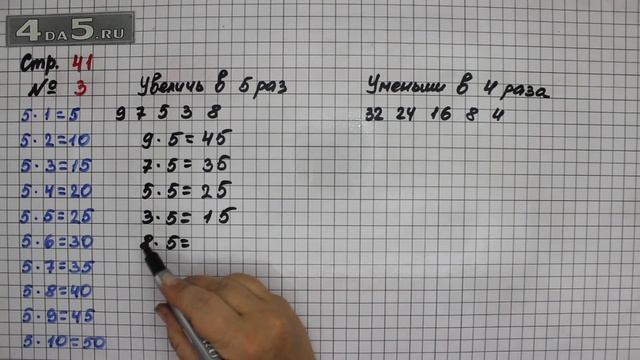 4DA5.RU
Стр. 41
№ 3
5·1=5
5·2=10
5·3=15
5·4=20
5·5=25
5·6=30
5·7=35
5·8=40
5·9=45
5·10=50
Увеличь в 5 раз
9 7 5 3 8
9·5=45
7·5=35
5·5=25
3·5=15
8·5=
Уменьши в 4 раза
32 24 16 8 4